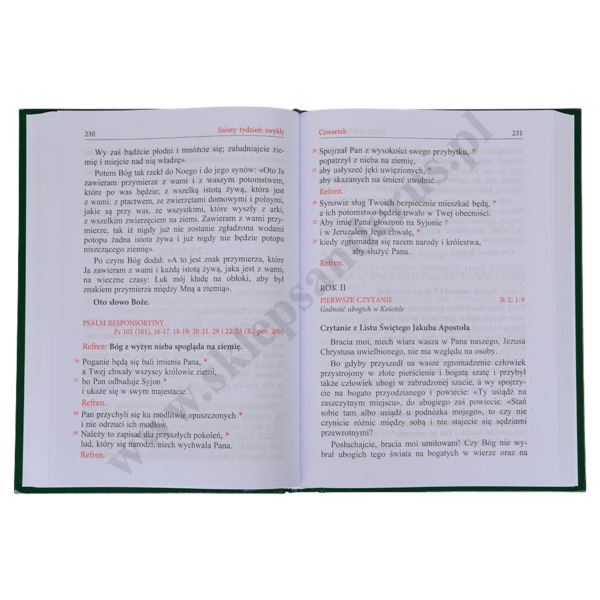 230 Szósty tydzień zwykły
Wy zaś bądźcie płodni i mnóżcie się; zaludniajcie zie-
mię i miejcie nad nią władzę».
Potem Bóg tak rzekł do Noego i do jego synów: «Oto Ja
zawieram przymierze z wami i z waszym potomstwem,
które po was będzie; z wszelką istotą żywą, która jest
z wami: z ptactwem, ze zwierzętami domowymi i polnymi,
jakie są przy was, ze wszystkimi, które wyszły z arki,
z wszelkim zwierzęciem na ziemi. Zawieram z wami przy-
mierze, tak iż nigdy już nie zostanie zgładzona wodami
potopu żadna istota żywa i już nigdy nie będzie potopu
niszczącego ziemię».
Po czym Bóg dodał: «A to jest znak przymierza, które
Ja zawieram z wami i każdą istotą żywą, jaka jest z wami,
na wieczne czasy: Łuk mój kładę na obłoki, aby był
znakiem przymierza między Mną a ziemią».
Oto słowo Boże.
PSALM RESPONSORYJNY
Ps 102 (101), 16-17. 18-19. 20-21. 29 i 22-23 (R.: por. 20b)
Refren: Bóg z wyżyn nieba spogląda na ziemię.
16 Poganie będą się bali imienia Pana, *
a Twej chwały wszyscy królowie ziemi,
17 bo Pan odbuduje Syjon *
i ukaże się w swym majestacie.
Refren.
18 Pan przychyli się ku modlitwie opuszczonych *
i nie odrzuci ich modłów.
19 Należy to zapisać dla przyszłych pokoleń, *
lud, który się narodzi, niech wychwala Pana.
Refren.
Czwartek 231
20 Spojrzał Pan z wysokości swego przybytku, *
popatrzył z nieba na ziemię,
21 aby usłyszeć jęki uwięzionych, *
aby skazanych na śmierć uwolnić.
Refren.
29 Synowie sług Twoich bezpiecznie mieszkać będą, *
a ich potomstwo będzie trwało w Twej obecności.
22 Aby imię Pana głoszono na Syjonie *
i w Jeruzalem Jego chwałę,
23 kiedy zgromadzą się razem narody i królestwa,
aby służyć Panu.
Refren.
ROK II
PIERWSZE CZYTANIE Jk 2, 1-9
Godność ubogich w Kościele
Czytanie z Listu Świętego Jakuba Apostoła
Bracia moi, niech wiara wasza w Pana naszego, Jezusa
Chrystusa uwielbionego, nie ma względu na osoby.
Bo gdyby przyszedł na wasze zgromadzenie człowiek
przystrojony w złote pierścienie i bogatą szatę i przybył
także człowiek ubogi w zabrudzonej szacie, a wy spojrzy-
cie na bogato przyodzianego i powiecie: «Ty usiądź na
zaszczytnym miejscu», do ubogiego zaś powiecie: «Stań
sobie tam albo usiądź u podnóżka mojego», to czy nie
czynicie różnic między sobą i nie stajecie się sędziami
przewrotnymi?
Posłuchajcie, bracia moi umiłowani! Czy Bóg nie wy-
brał ubogich tego świata na bogatych w wierze oraz na